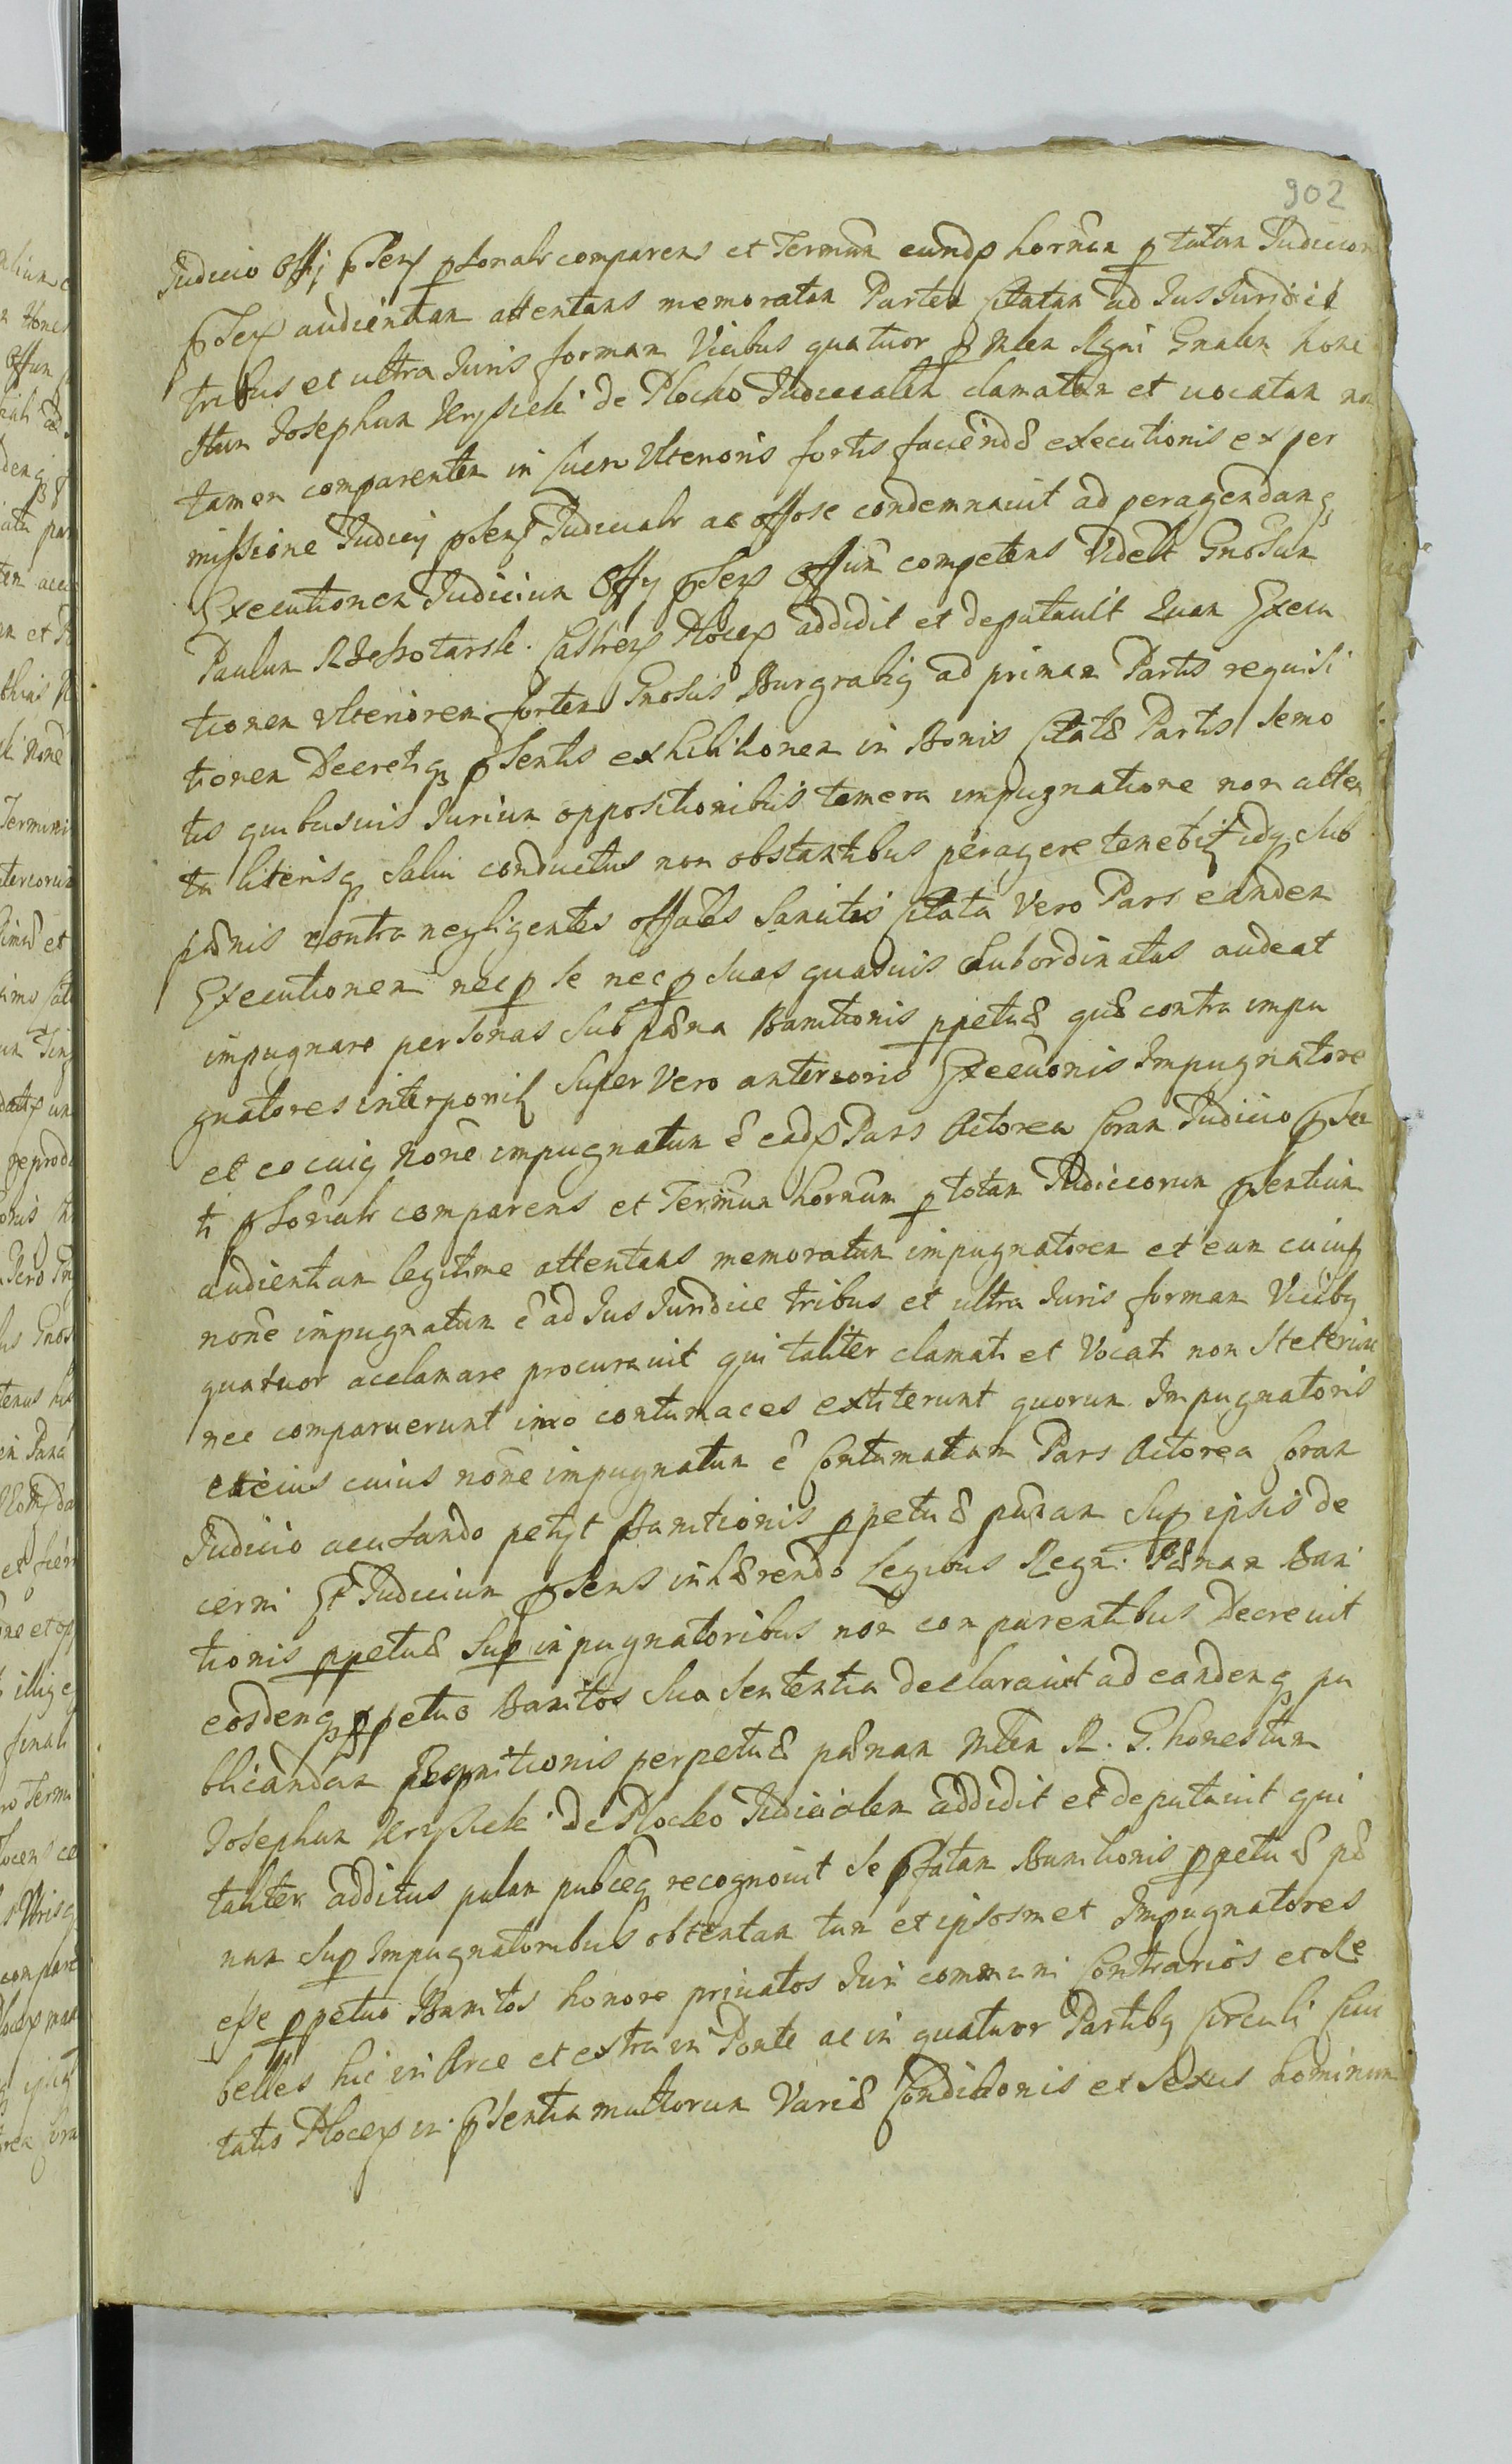 902
Judicio Offij pntis psonalr comparens et Termin eundp hornum p totam Judicior
pntis audientiam attentans memoratam Partem Citatam ad Jus Juridice
tribus et ultra Juris formam Vicibus quatuor p Mlem Rgni Gnalem hone
stum Josephum Krysicki de Plocko Judicialem clamatam et vocatam non
tamen comparentem in Lucro Ulterioris fortis faciendæ executionis ex per
missione Judicij psens Judicialr ac offose condemnavit ad peragendamq
Executionem Judicium Offij psens Offium competens Videlt Gnosum
Paulum Castren Plocen addidit et deputavit Quam Execu
tionem ulteriorem fortem Gnosus Burgrabiq ad primam Partis requisi
tionem Decretiq psentis exhibitionem in Bonis Citatæ Partis Semo
tis quibusvis Jurium oppositionibus temera impugnatione non atten
ta literisq Salvi conductus non obstantibus peragere tenebit idq Sub
pænis contra negligentes offales Sancitis Citata Vero Pars eandem
Executionem nec p se nec p Suas quasvis Subordinatas audeat
impugnare personas Sub pæna Banitionis ppetuæ quæ contra impu
gnatores interponit Super Vero anterioris Execuonis Impugnatore
et eo cuiq noñe impugnatum ẽ eadp Pars Actorea Coram Judicio psen
ti psonalr comparens et Terminum hornum p totam Judiciorum psentium
audientiam legitime attentans memoratum impugnatorem et eum cuiuq
noñe impugnatum ẽ ad Jus Juridice tribus et ultra Juris formam Vicibq
quatuor acclamare procuravit qui taliter clamati et Vocati non Steterunt
nec comparuerunt imo contumaces extiterunt quorum Impugnatoris
et eius cuius noñe impugnatum ẽ Contumatiam Pars Actorea Coram
Judicio acusando petijt Banitionis ppetuæ pænam Sup ipsis de
cerni Et Judicium psens inhærendo Legibus Regni Pænam Bani
tionis ppetuæ Sup inpugnatoribus non comparentibus Decrevit
eosdemq ppetuo Banitos Sua Sententia declaravit ad eandemq pu
blicandam perpetuæ pænam Mlem R. G. honestum
Josephum Krysicki de Plocko Judicialem addidit et deputavit qui
taliter additus palam publceq recognovit Se pfatam Banitionis ppetuæ pæ
nam Sup Impugnatoribus obtentam tum et ipsosmet Impugnatores
esse ppetuo Banitos honore privatos Juri communi Contrarios et Re
belles hic in Arce et extra in Ponte ac in quatuor Partibq Circuli Civi
tatis Plocen in psentia multorum Variæ Conditionis et Sexus hominum